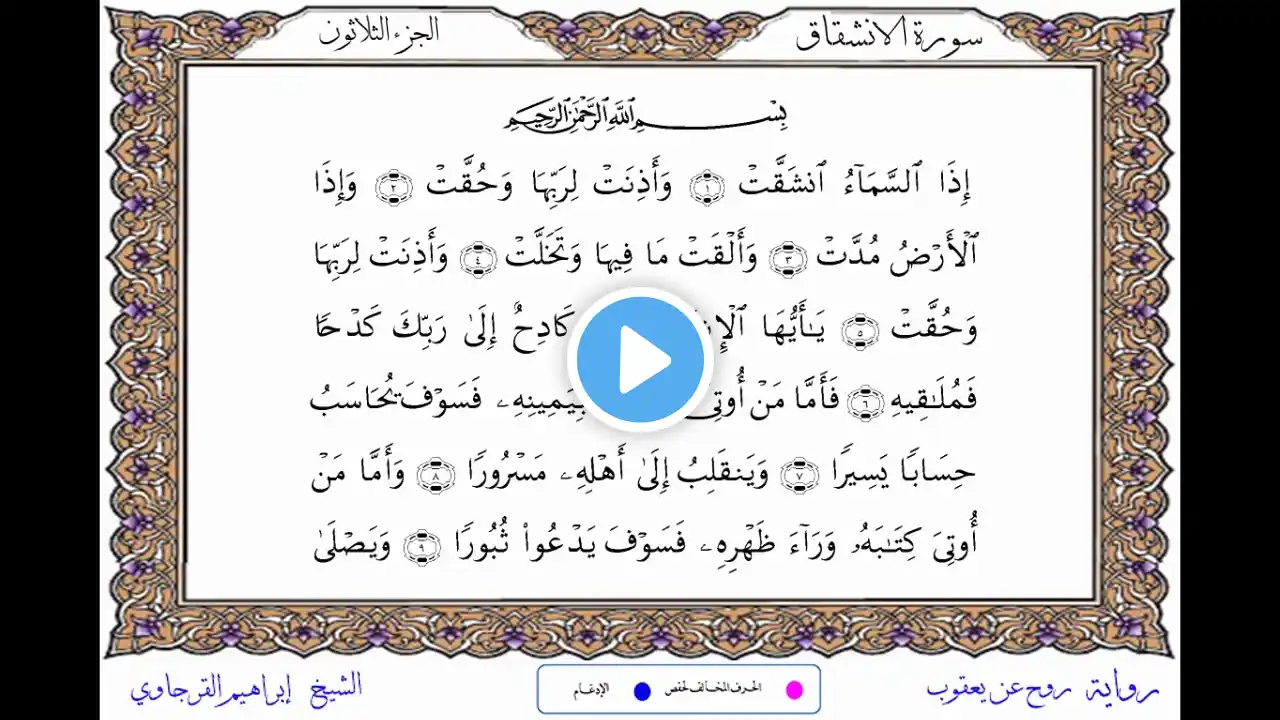 سورة الانشقاق
الجزء الثلاثون
بِسْمِ ٱللَّهِ ٱلرَّحْمَٰنِ ٱلرَّحِيمِ
إِذَا ٱلسَّمَآءُ ٱنشَقَّتْ ١ وَأَذِنَتْ لِرَبِّهَا وَحُقَّتْ ٢ وَإِذَا
ٱلْأَرْضُ مُدَّتْ ٣ وَأَلْقَتْ مَا فِيهَا وَتَخَلَّتْ ٤ وَأَذِنَتْ لِرَبِّهَا
وَحُقَّتْ ٥ يَـٰأَيُّهَا كَادِحٌ إِلَىٰ رَبِّكَ كَدْحًا
فَمُلَـٰقِيهِ ٦ فَأَمَّا مَنْ أُوتِيَ بِيَمِينِهِۦ فَسَوْفَ يُحَاسَبُ
حِسَابًا يَسِيرًا ٧ وَيَنقَلِبُ إِلَىٰ أَهْلِهِۦ مَسْرُورًا ٨ وَأَمَّا مَنْ
أُوتِيَ كِتَـٰبَهُۥ وَرَآءَ ظَهْرِهِۦ فَسَوْفَ يَدْعُواْ ثُبُورًا ٩ وَيَصْلَىٰ
رواية روح عن يعقوب
الحرف المخالف لحفص
الإدغام
الشيخ إبراهيم القرجاوي